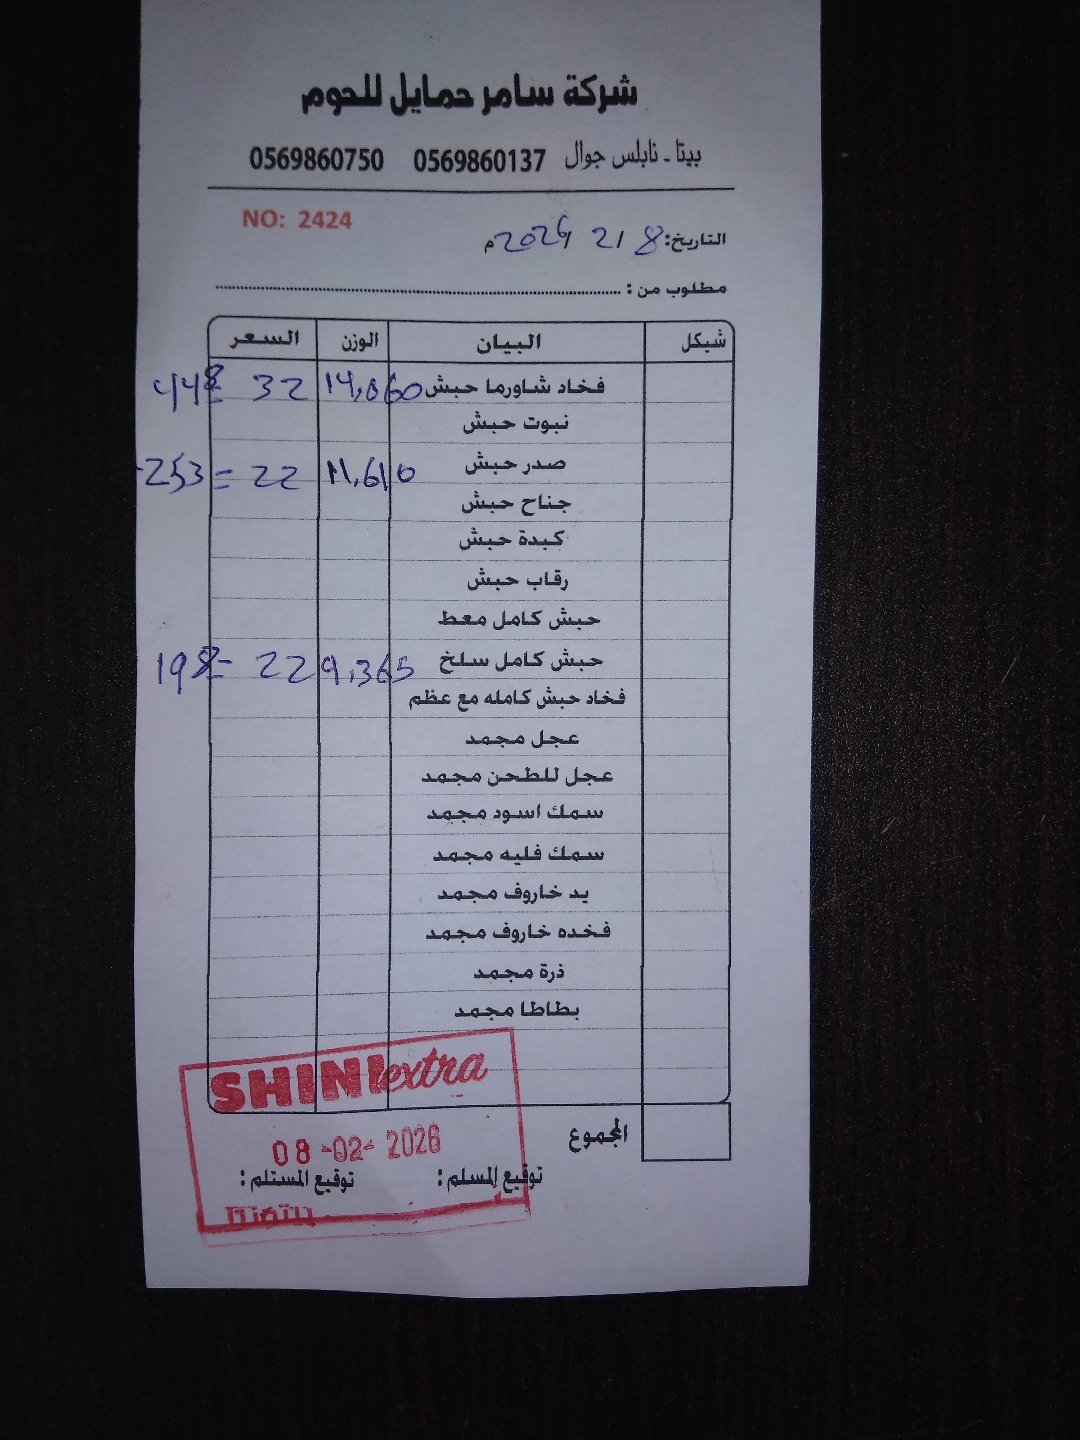 شركة سامر حمايل للحوم
بيتا - نابلس جوال 0569860137 0569860750
NO: 2424
التاريخ: 8 / 2 / 2026م
مطلوب من :
شيكل البيان الوزن السعر
فخاد شاورما حبش 14,060 32 = 448
نبوت حبش
صدر حبش 11,610 22 = 253
جناح حبش
كبدة حبش
رقاب حبش
حبش كامل معط
حبش كامل سلخ 9,365 22 = 198
فخاد حبش كامله مع عظم
عجل مجمد
عجل للطحن مجمد
سمك اسود مجمد
سمك فليه مجمد
يد خاروف مجمد
فخده خاروف مجمد
ذرة مجمد
بطاطا مجمد
SHINI extra
المجموع
08 -02- 2026
توقيع المسلم : توقيع المستلم :